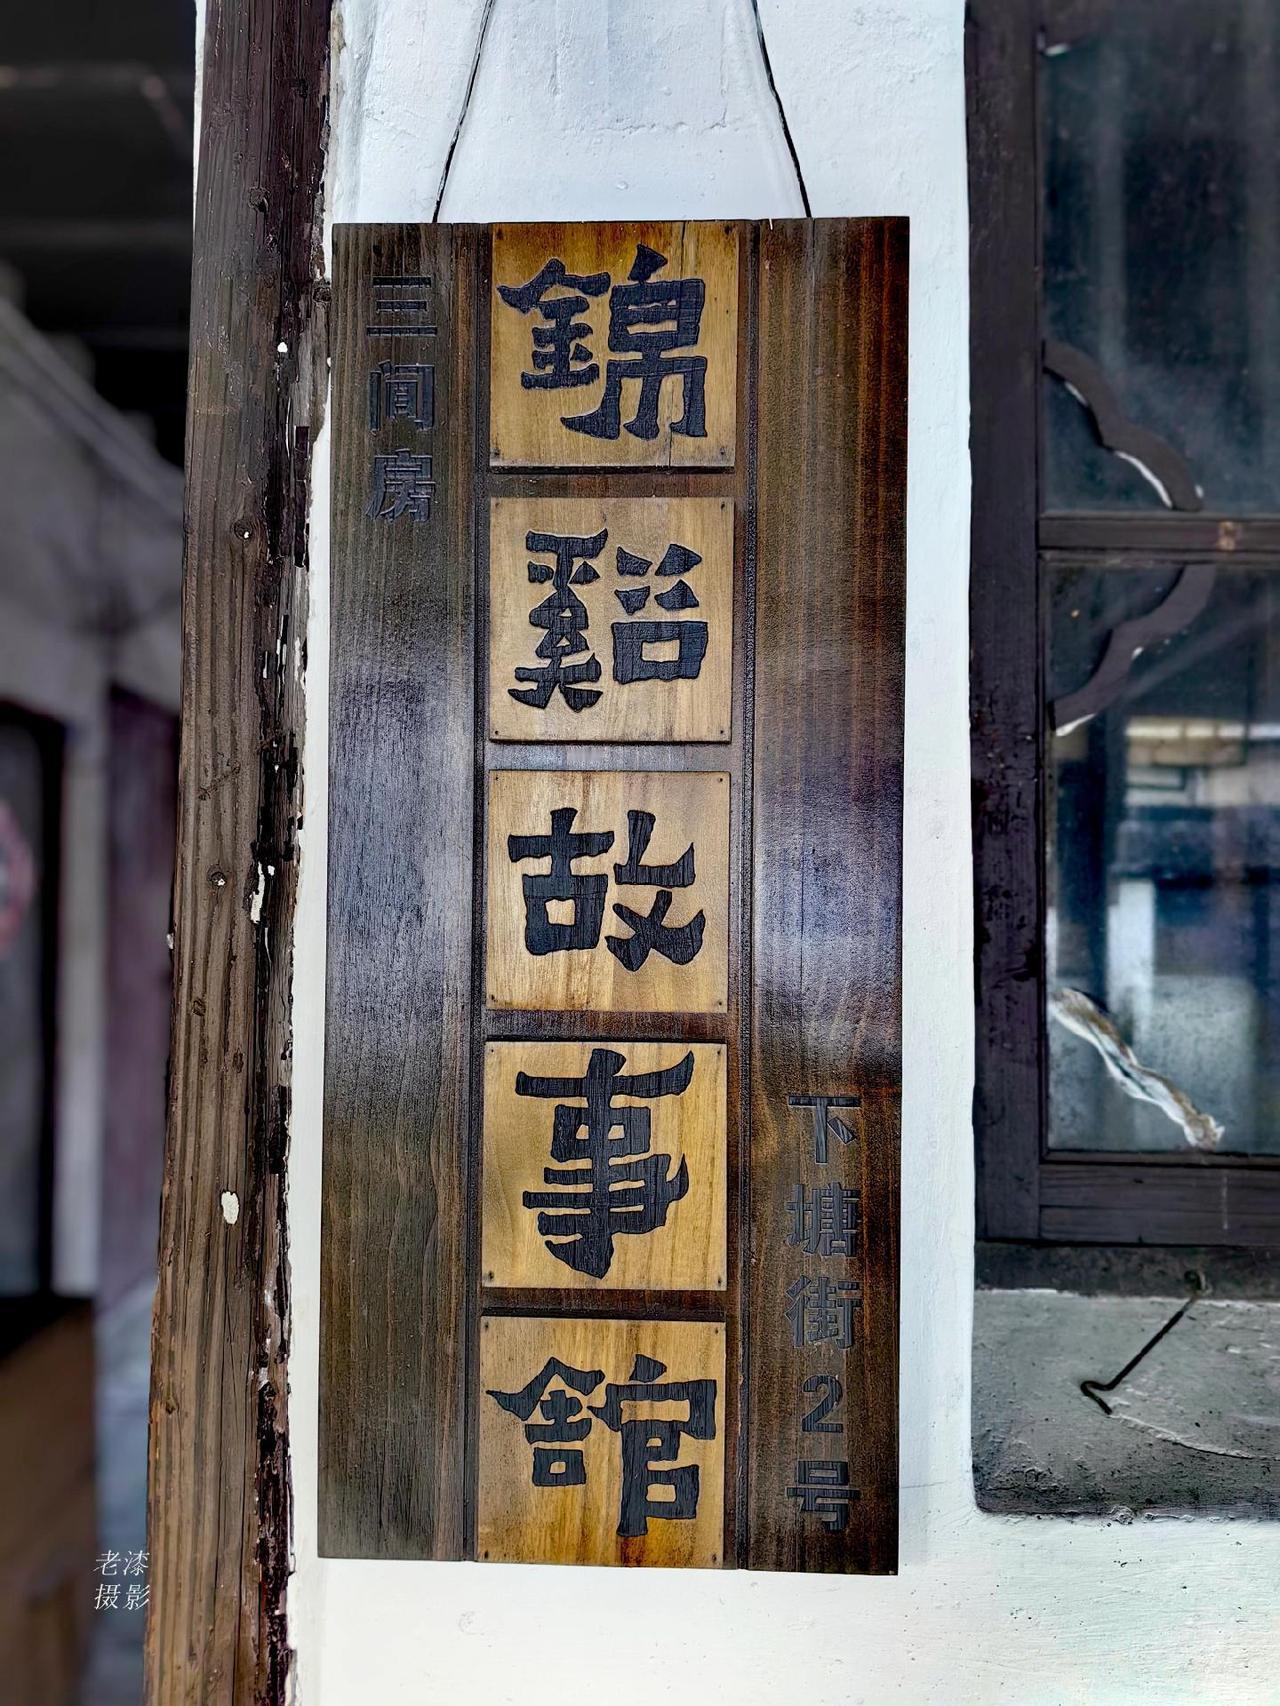 三间房
錦谿故事館
下塘街2号
老漆
摄影